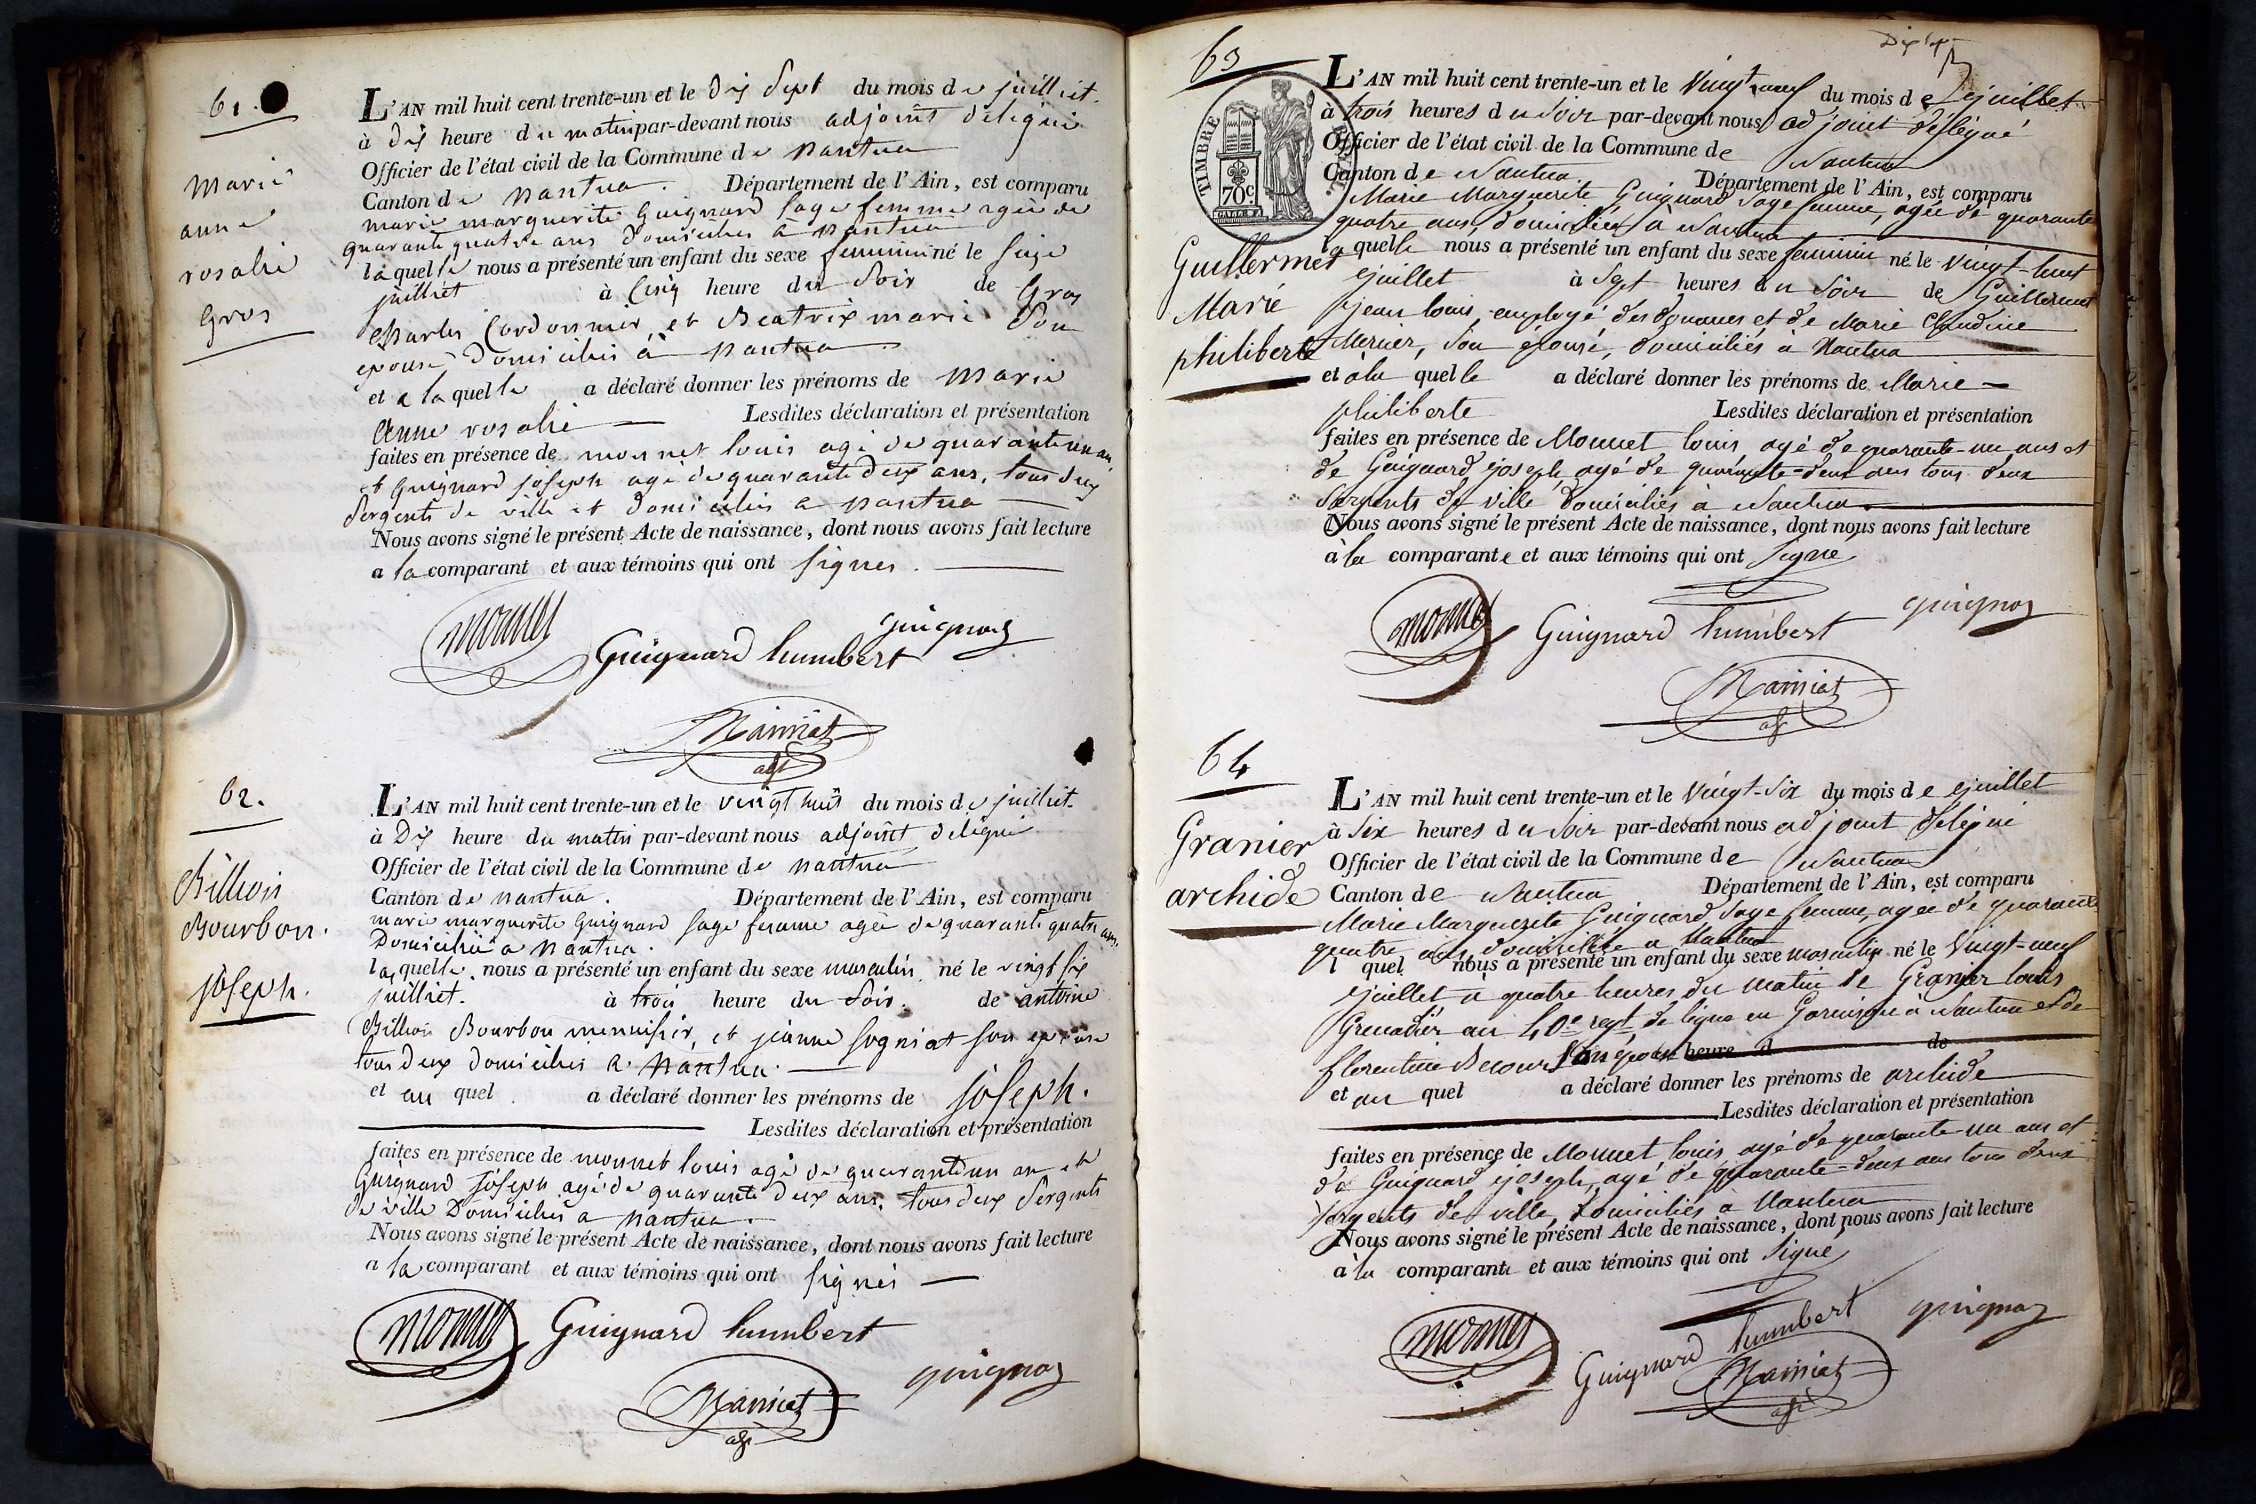 61.
Marie
anne
rosalie
Gros
L'AN mil huit cent trente-un et le dix sept du mois de juilliet.
à dix heure du matin par-devant nous adjoint deligué
Officier de l'état civil de la Commune de nantua
Canton de nantua. Département de l'Ain, est comparu
marie marguerite Guignard sage femme agée de
quarante quatre ans domiciliée à nantua
laquelle nous a présenté un enfant du sexe feminin né le seize
juilliet à cinq heure du soir de Gros
charles Cordonnier, et Beatrix marie son
epouse domiciliés à nantua
et a laquelle a déclaré donner les prénoms de Marie
Anne rosalie Lesdites déclaration et présentation
faites en présence de monnet louis agé de quarante un an,
et Guignard joseph agé de quarante deux ans, tous deux
sergents de ville et domiciliés a nantua
Nous avons signé le présent Acte de naissance, dont nous avons fait lecture
a la comparant et aux témoins qui ont signés.
monnet
Guignard humbert
guignard
adjt
62.
Billion
Bourbon.
joseph.
L'AN mil huit cent trente-un et le vingt huit du mois de juilliet.
à Dix heure du matin par-devant nous adjoint deligué
Officier de l'état civil de la Commune de nantua
Canton de nantua. Département de l'Ain, est comparu
marie marguerite Guignard sage femme agée de quarante quatre ans.
Domiciliée a nantua.
laquelle nous a présenté un enfant du sexe masculin né le vingt six
juilliet. à trois heure du soir. de antoine
Billion Bourbon menuisier, et jeanne sogniat son epouse
tous deux domiciliés a nantua.
et au quel a déclaré donner les prénoms de joseph.
Lesdites déclaration et présentation
faites en présence de monnet louis agé de quarante un an et
Guignard joseph agé de quarante deux ans. tous deux sergents
de ville Domiciliés a nantua.
Nous avons signé le présent Acte de naissance, dont nous avons fait lecture
a la comparant et aux témoins qui ont signés
monnet
Guignard humbert
guignard
adjt
63
TIMBRE ROYAL
70c
Guillermet
Marie
philiberte
L'AN mil huit cent trente-un et le Vingt neuf du mois de juillet
à trois heures du soir par-devant nous adjoint délégué
Officier de l'état civil de la Commune de Nantua
Canton de Nantua. Département de l'Ain, est comparu
Marie Marguerite Guignard sage femme, agée de quarante
quatre ans, domiciliée à Nantua
laquelle nous a présenté un enfant du sexe feminin né le Vingt-huit
juillet à sept heures du soir de Guillermet
jean louis, employé des douanes et de Marie Claudine
Mercier, son épouse, domiciliés à Nantua
et à la quelle a déclaré donner les prénoms de Marie
philiberte Lesdites déclaration et présentation
faites en présence de Monnet louis, agé de quarante-un ans et
de Guignard joseph, agé de quarante-deux ans tous deux
sergents de ville domiciliés à Nantua.
Nous avons signé le présent Acte de naissance, dont nous avons fait lecture
à la comparante et aux témoins qui ont signé
monnet
Guignard humbert
guignard
adjt
64
Granier
archide
L'AN mil huit cent trente-un et le Vingt-six du mois de juillet
à six heures du soir par-devant nous adjoint délégué
Officier de l'état civil de la Commune de Nantua
Canton de Nantua Département de l'Ain, est comparu
Marie Marguerite Guignard, sage femme, agée de quarante
quatre ans, domiciliée a Nantua
l quel nous a présenté un enfant du sexe masculin né le Vingt-neuf
juillet a quatre heures du matin de Granier louis
Grenadier au 40e regt de ligne en Garnison à Nantua et de
florentine Becour son épouse heure d de
et au quel a déclaré donner les prénoms de archide
Lesdites déclaration et présentation
faites en présence de Monnet louis, agé de quarante-un ans et
de Guignard joseph, agé de quarante-deux ans tous deux
sergents de ville, domiciliés à Nantua
Nous avons signé le présent Acte de naissance, dont nous avons fait lecture
à la comparante et aux témoins qui ont signé
monnet
Guignard humbert
guignard
adjt